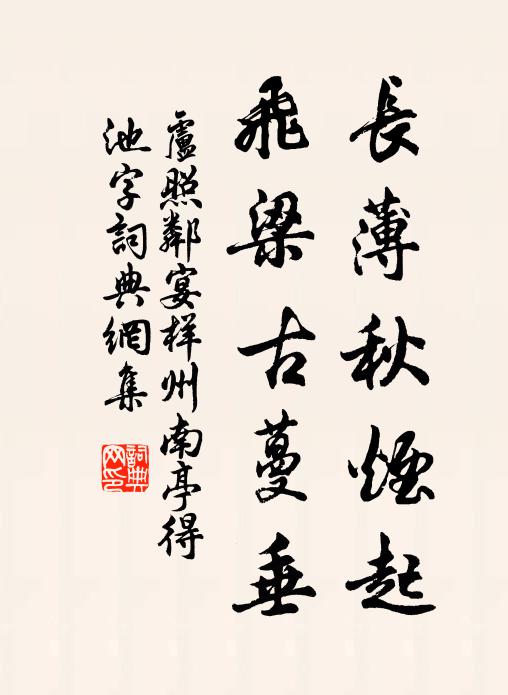 長薄秋煙起
飛梁古蔓垂
盧照鄰宴梓州南亭得
池字詞典網集
詞典网印